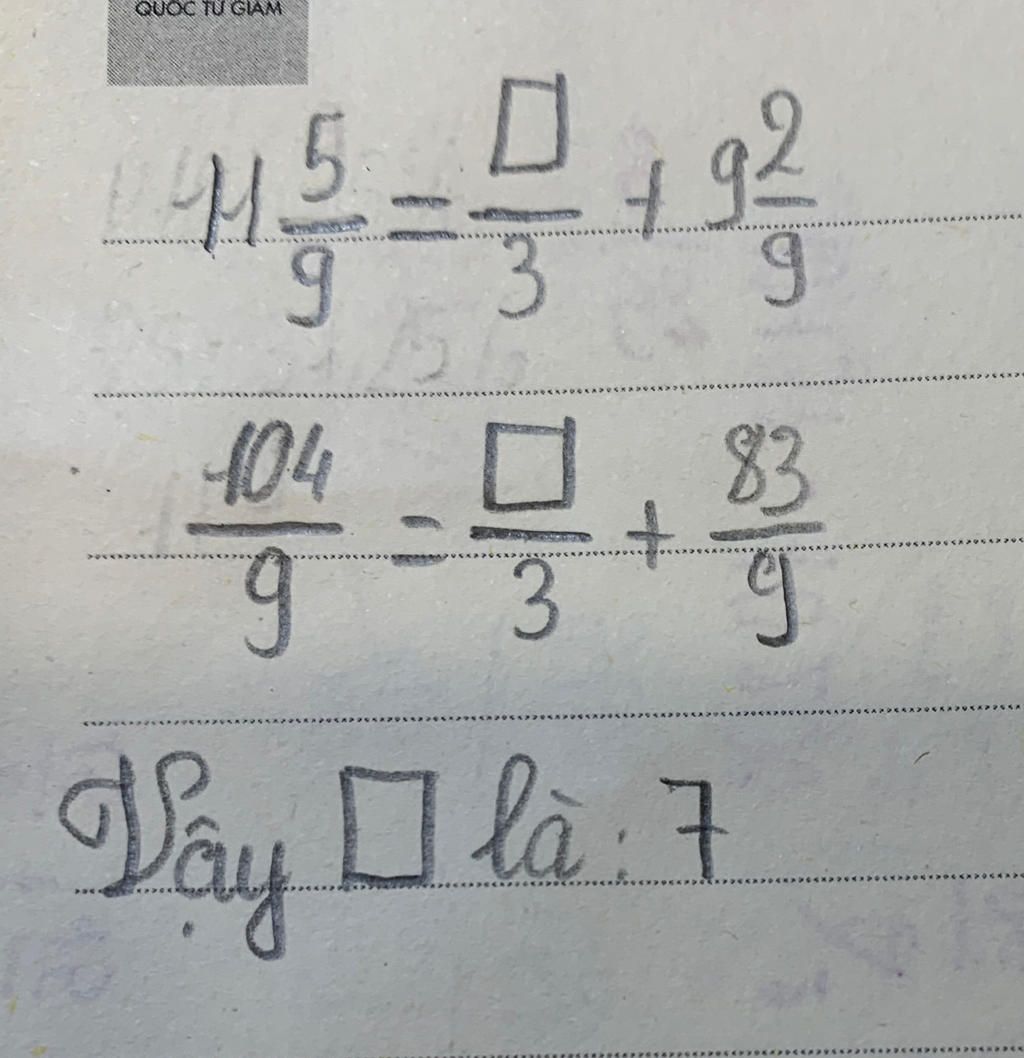 QUỐC TỬ GIÁM
11 5/9 = □/3 + 9 2/9
104/9 = □/3 + 83/9
Vậy □ là: 7